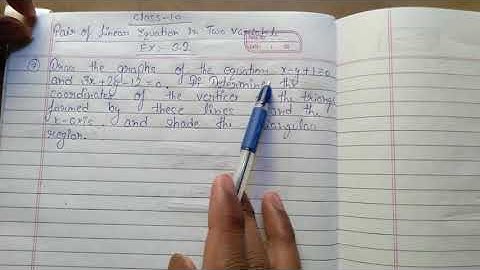 Class-10
Pair of Linear Equation in Two variables
Ex:- 3.2
⑦ Draw the graphs of the equation x-y+1=0
and 3x+2y-12=0. Determine the
coordinates of the vertices the triangle
formed by these lines and the
x-axis and shade the triangular
region.